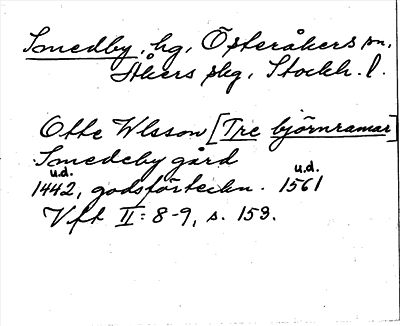 Smedby, hg, Österåkers sn,
Åkers skg, Stockh. l.
Otte Wlsson [Tre björnramar]
Smedeby gård
u.d. u.d.
1442, godsförteckn. 1561
Vft II: 8-9, s. 159.